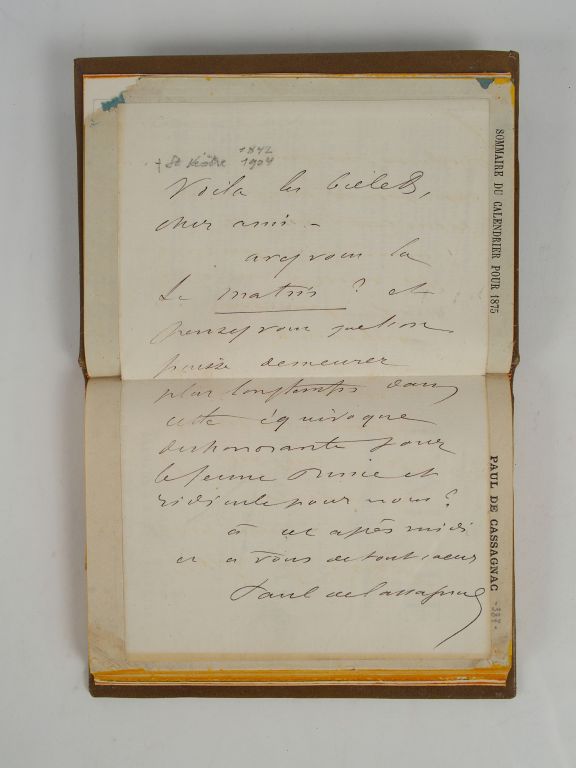 1842
1904
Voila les billets,
cher ami -
avez vous lu
Le matin ? et
pensez vous que l'on
puisse demeurer
plus longtemps dans
cette équivoque
deshonorante pour
le jeune Prince et
ridicule pour nous ?
à cet après midi
et a vous de tout coeur
Paul de Cassagnac
SOMMAIRE DU CALENDRIER POUR 1875
PAUL DE CASSAGNAC